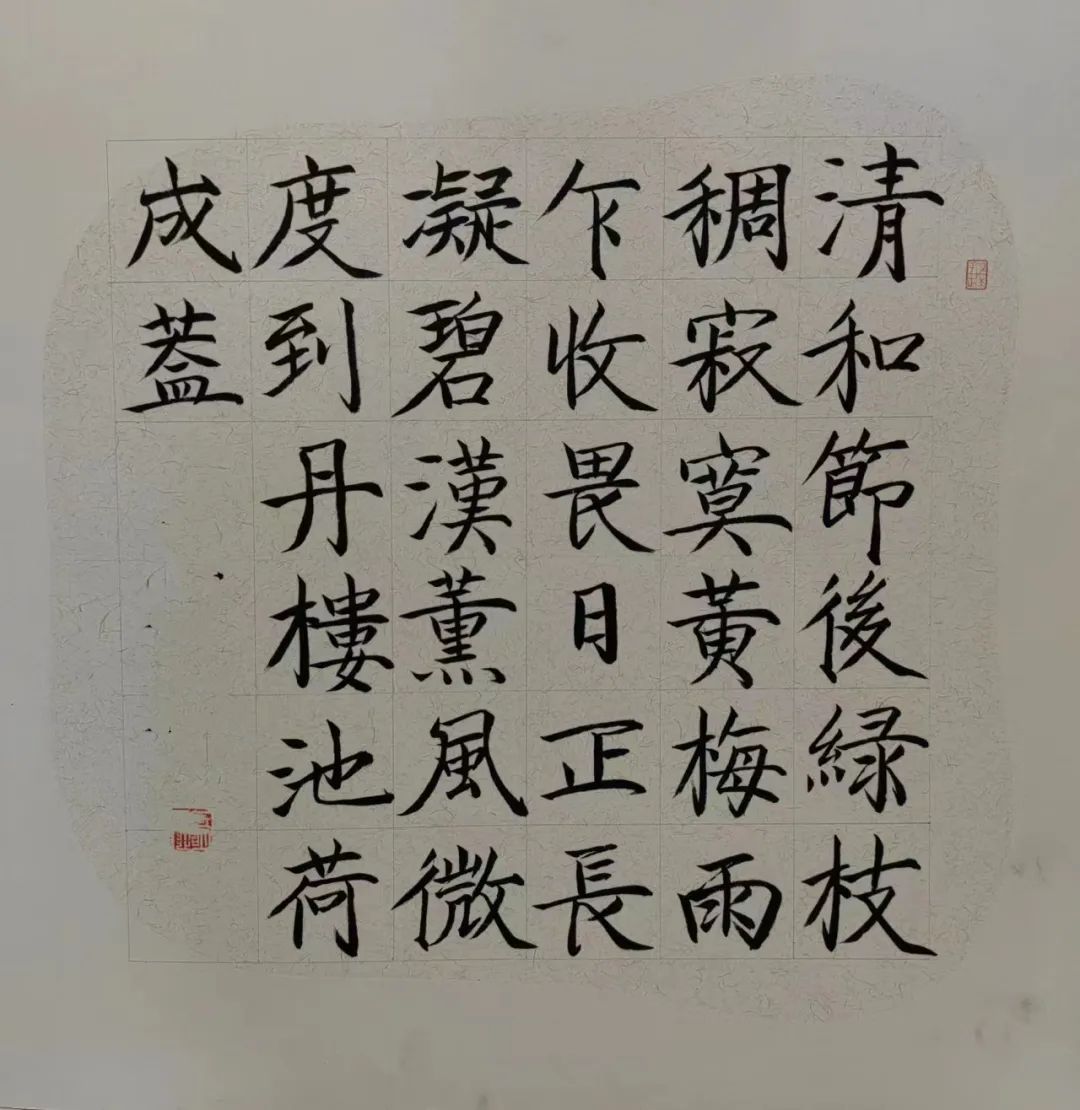 清和節後緑枝
稠寂寞黄梅雨
乍收畏日正長
凝碧漢薰風微
度到丹樓池荷
成蓋